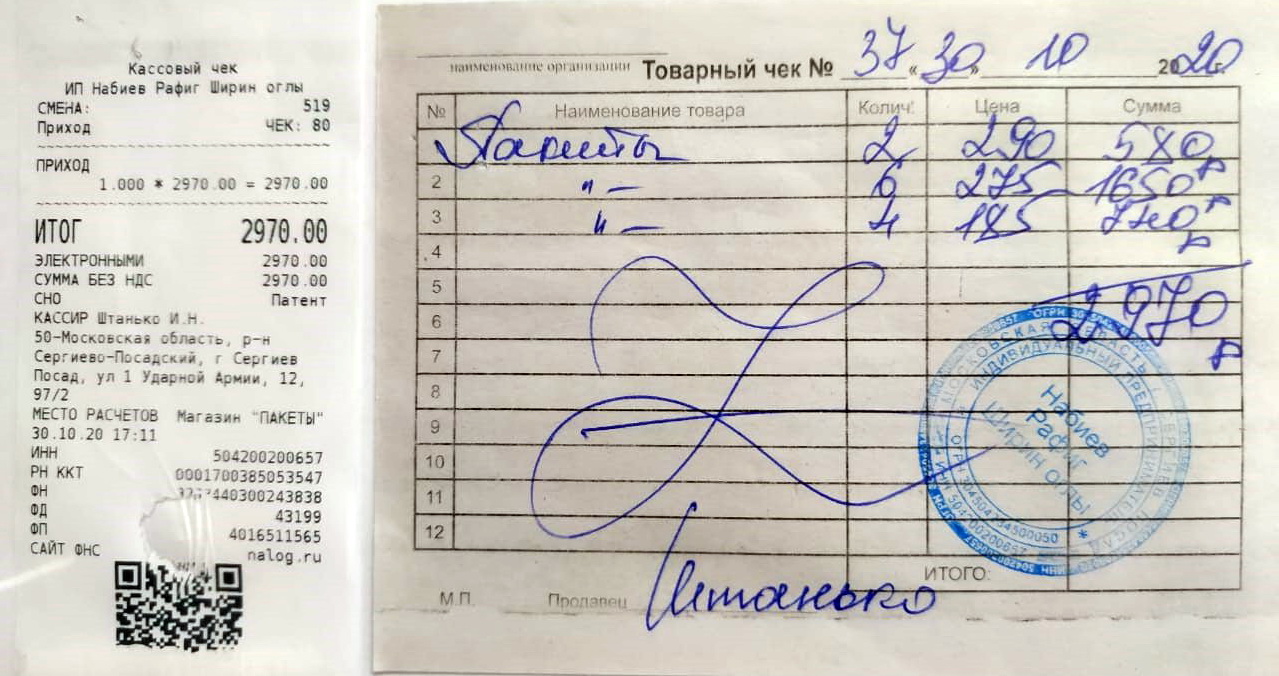 Кассовый чек
ИП Набиев Рафиг Ширин оглы
СМЕНА: 519
Приход ЧЕК: 80
ПРИХОД
1.000 * 2970.00 = 2970.00
ИТОГ 2970.00
ЭЛЕКТРОННЫМИ 2970.00
СУММА БЕЗ НДС 2970.00
СНО Патент
КАССИР Штанько И.Н.
50-Московская область, р-н
Сергиево-Посадский, г Сергиев
Посад, ул 1 Ударной Армии, 12,
97/2
МЕСТО РАСЧЕТОВ Магазин "ПАКЕТЫ"
30.10.20 17:11
ИНН 504200200657
РН ККТ 0001700385053547
ФН 440300243838
ФД 43199
ФП 4016511565
САЙТ ФНС nalog.ru
наименование организации Товарный чек № 37 «30» 10 2020г.
№ Наименование товара Колич. Цена Сумма
Пакеты 2 290 580
2 " — 6 275 1650
3 " — 4 185 740
4
5
6 2970
7
8
9
10
11
12
ИТОГО:
М.П. Продавец Штанько
ИНДИВИДУАЛЬНЫЙ ПРЕДПРИНИМАТЕЛЬ
МОСКОВСКАЯ ОБЛАСТЬ
Набиев
Рафиг
Ширин оглы
ИНН 504200200657